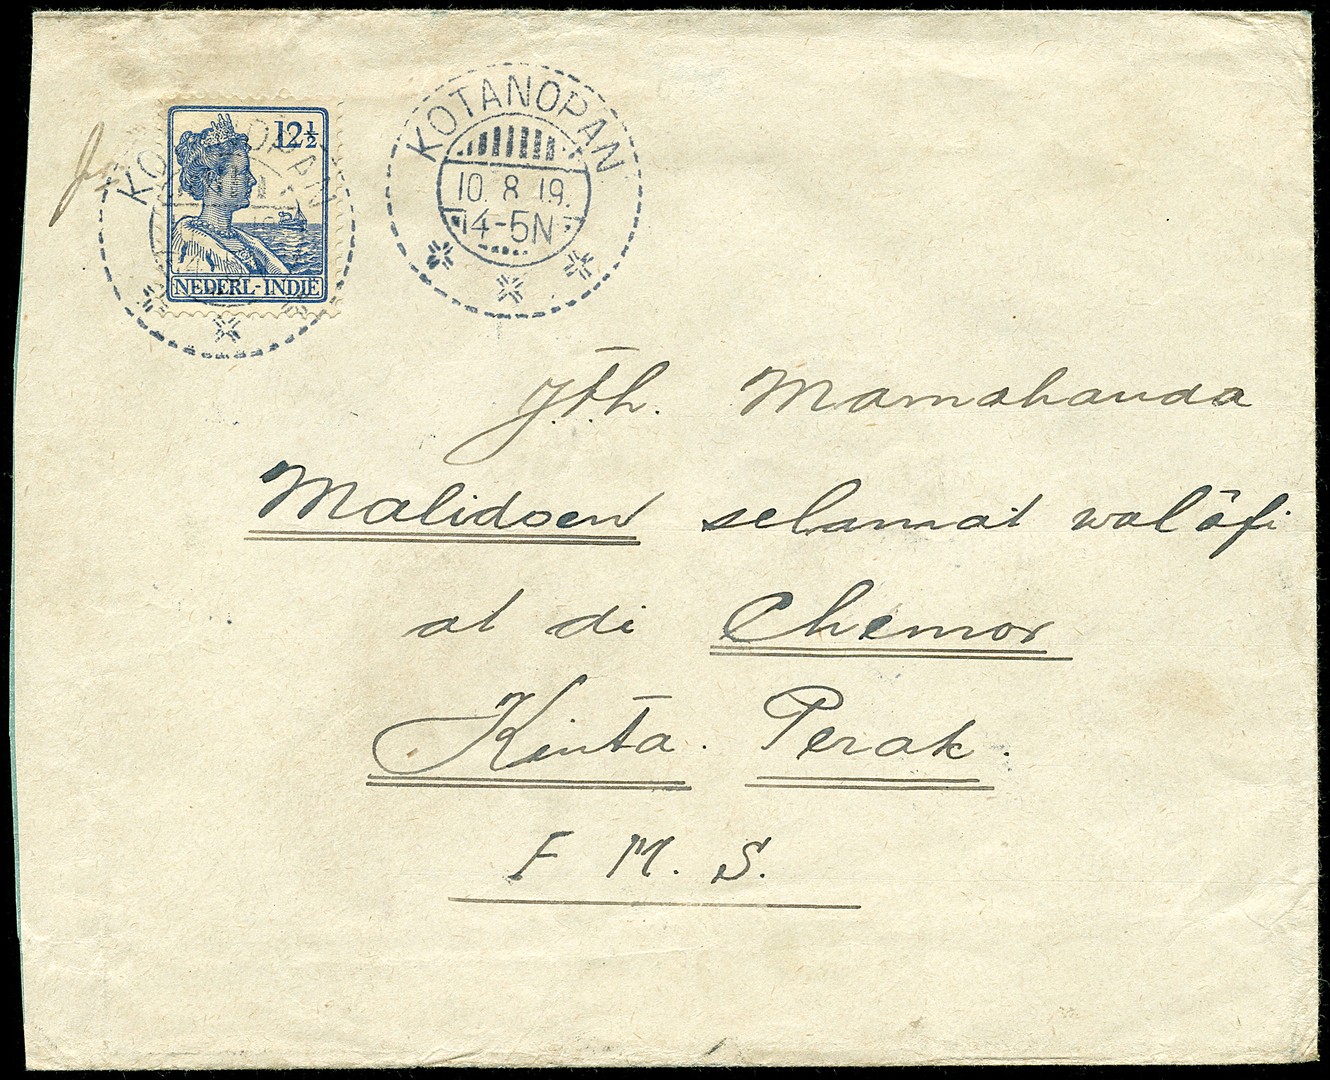 12½
NEDERL-INDIË
KOTANOPAN
KOTANOPAN
10. 8 19.
4-5N
Jth. Mamahanda
Malidoen selamat walāfi
at di Chemor
Kinta. Perak.
F M. S.